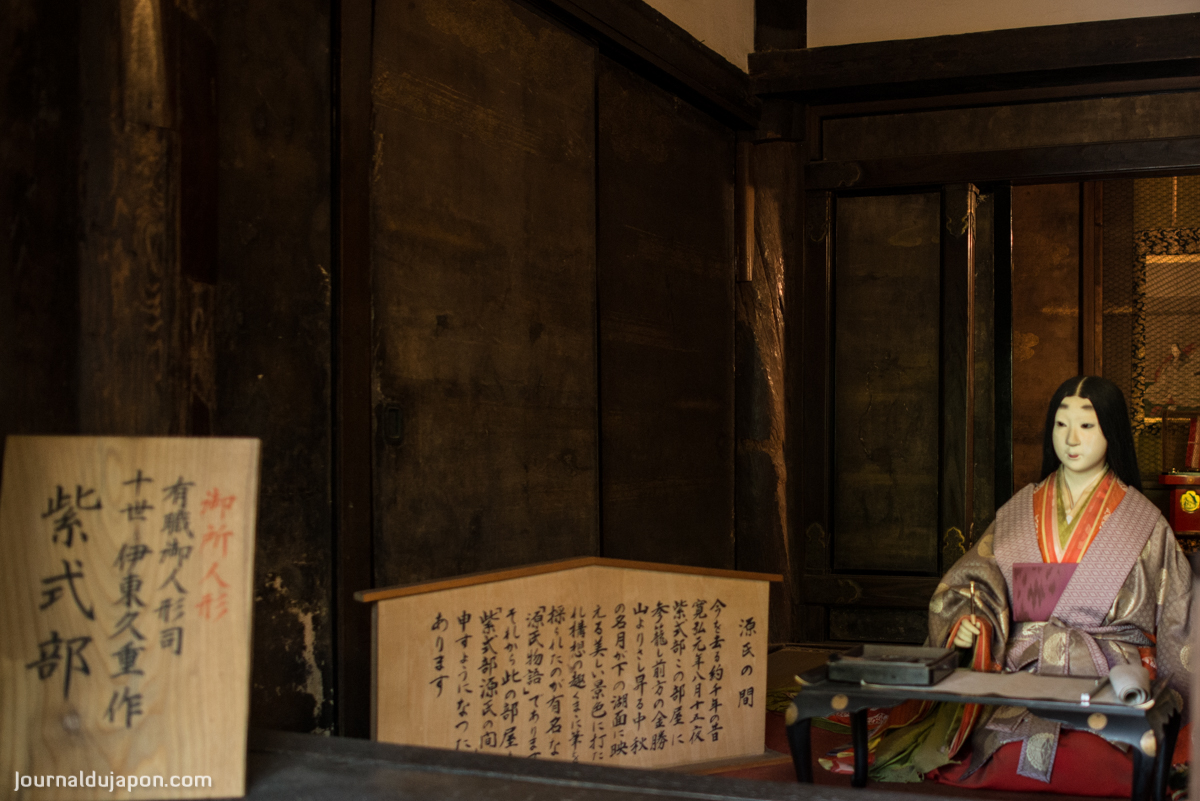 御所人形
有職御人形司
十世 伊東久重 作
紫式部
源氏の間
今を去る約千年の昔
寛弘元年八月十五夜
紫式部この部屋に
参籠し前方の金勝
山よりさし昇る中秋
の名月が下の湖面に映
える美しい景色に打た
れ構想の趣くまゝに筆を
採られたのが有名な
「源氏物語」であります
それから此の部屋を
「紫式部源氏の間」
申すようになつた
あります
Journaldujapon.com